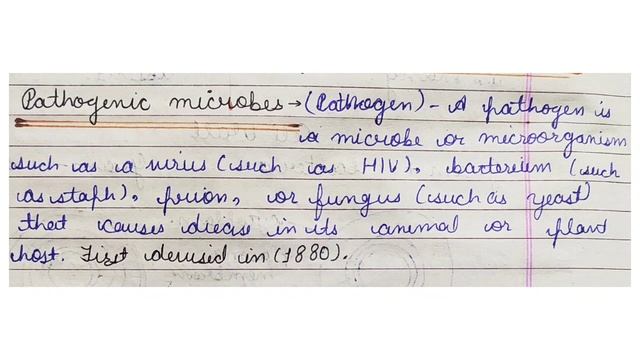 Pathogenic microbes → (Pathogen) - A pathogen is
a microbe or microorganism
such as a virus (such as HIV), bacterium (such
as staph), prion, or fungus (such as yeast)
that causes diecise in its animal or plant
host. First derused in (1880).